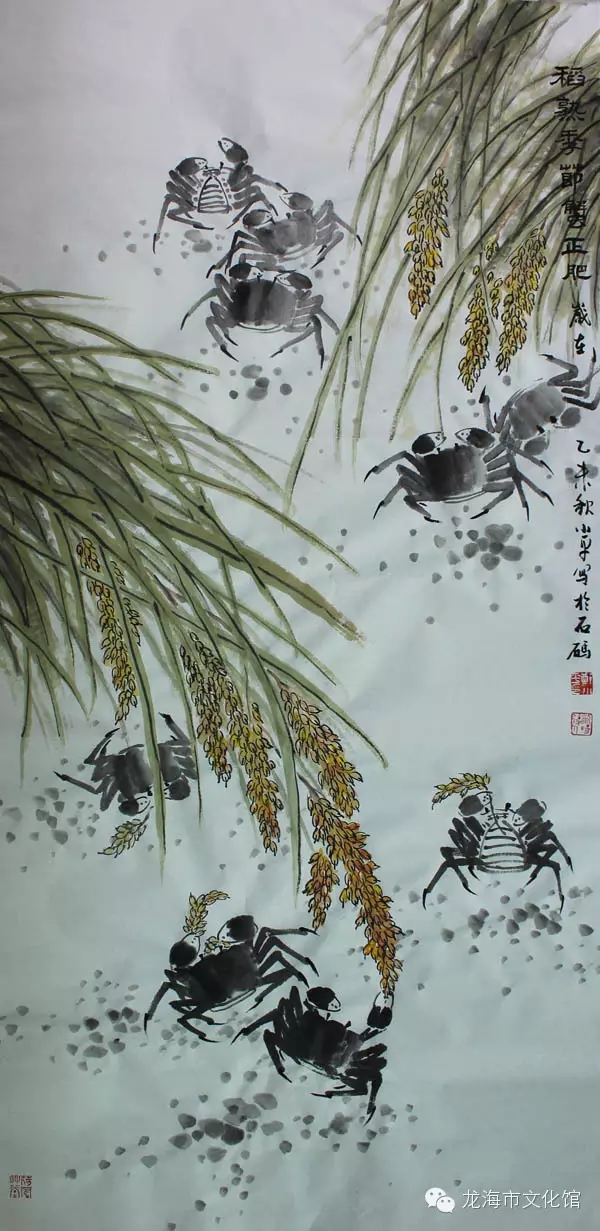 稻熟季節蟹正肥
歲在
乙未秋小草写於石碼
龙海市文化馆